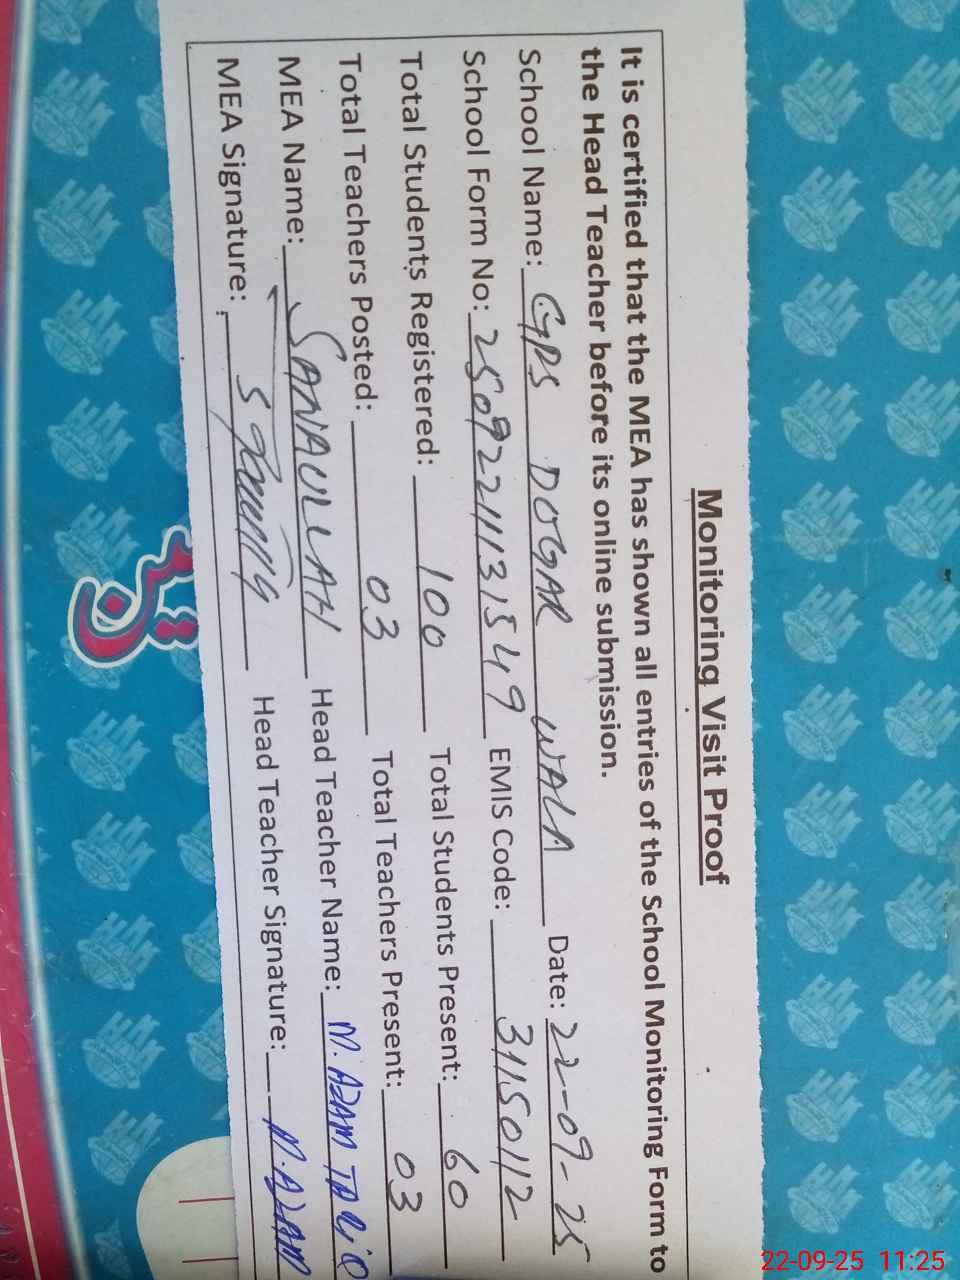 Monitoring Visit Proof
It is certified that the MEA has shown all entries of the School Monitoring Form to
the Head Teacher before its online submission.
School Name: GPS DOGAR WALA Date: 22-09-25
School Form No: 25092211131549 EMIS Code: 31150112
Total Students Registered: 100 Total Students Present: 60
Total Teachers Posted: 03 Total Teachers Present: 03
MEA Name: SANAULLAH Head Teacher Name: M. AZAM TARIQ
MEA Signature: Head Teacher Signature: M. AZAM
22-09-25 11:25